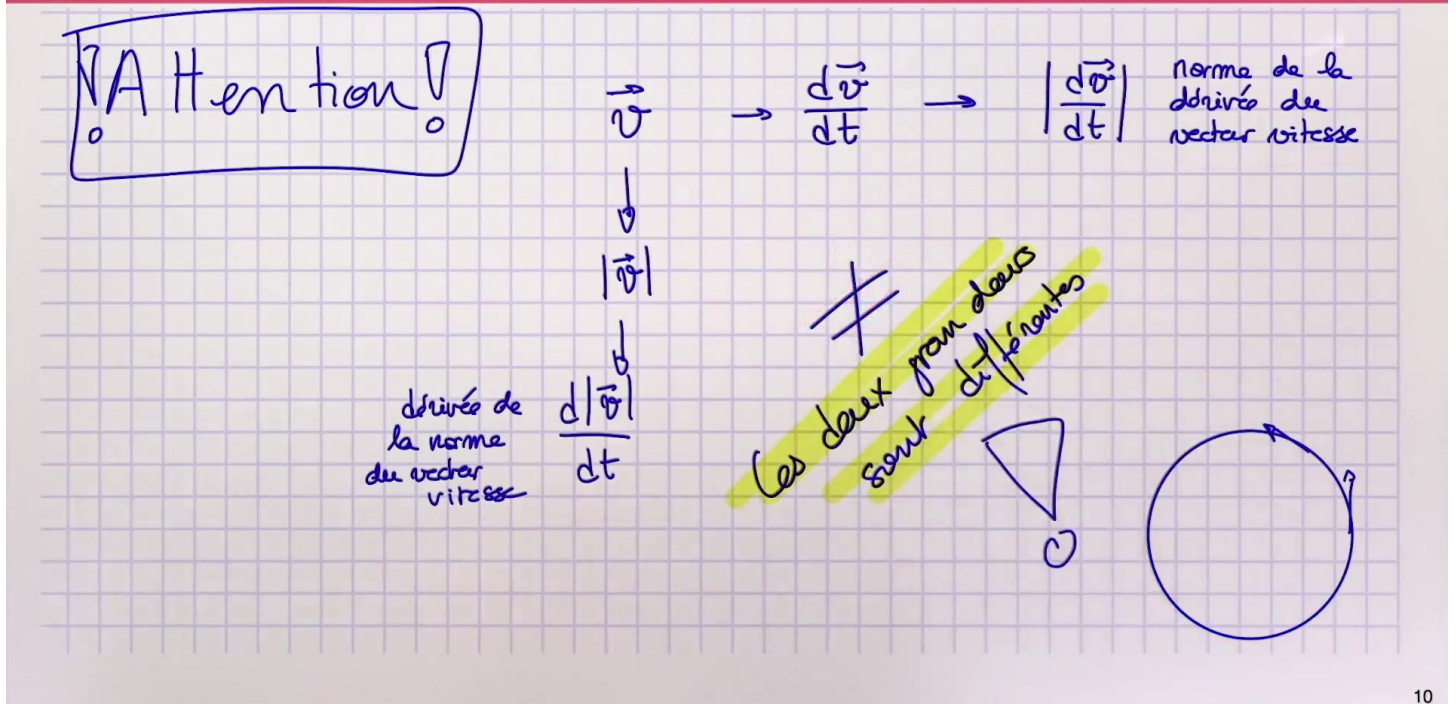 !Attention!
$\vec{v}$ → $\frac{d\vec{v}}{dt}$ → $\left|\frac{d\vec{v}}{dt}\right|$
norme de la
dérivée du
vecteur vitesse
↓
$|\vec{v}|$
↓
$\frac{d|\vec{v}|}{dt}$
dérivée de
la norme
du vecteur
vitesse
≠
Les deux grandeurs
sont différentes
!
10